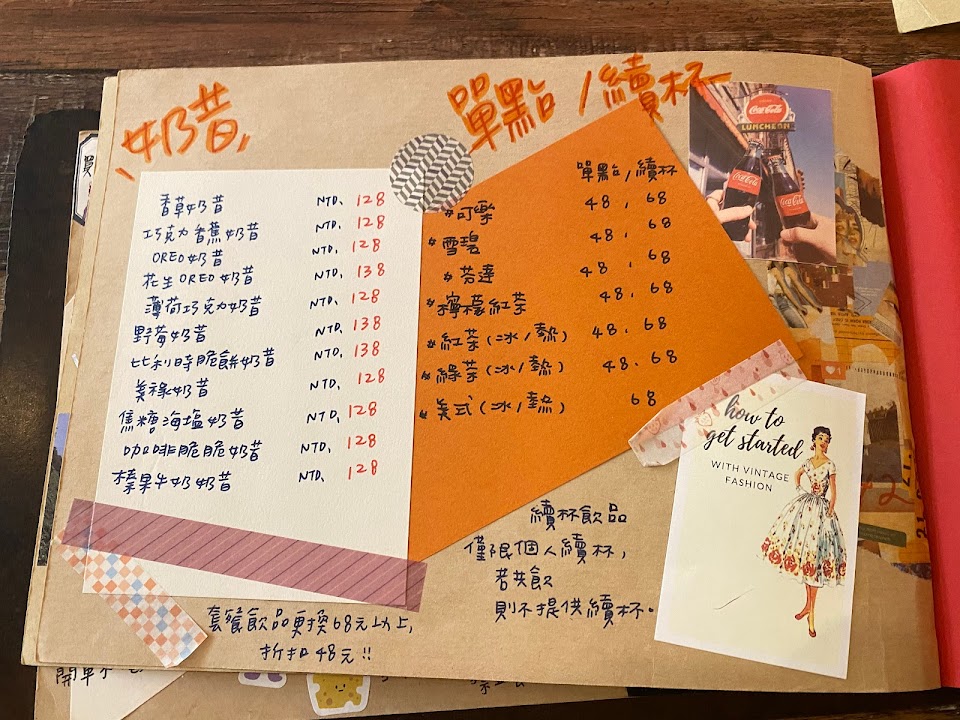 奶昔
香草奶昔 NTD. 128
巧克力香蕉奶昔 NTD. 128
OREO奶昔 NTD. 128
花生OREO奶昔 NTD. 138
薄荷巧克力奶昔 NTD. 128
野莓奶昔 NTD. 138
比利時脆餅奶昔 NTD. 138
美祿奶昔 NTD. 128
焦糖海塩奶昔 NTD. 128
咖啡脆脆奶昔 NTD. 128
榛果牛奶奶昔 NTD. 128
套餐飲品更換68元以上,
折扣48元!!
單點/續杯
單點/續杯
#可樂 48, 68
#雪碧 48, 68
#芬達 48, 68
#檸檬紅茶 48, 68
#紅茶(冰/熱) 48, 68
#綠茶(冰/熱) 48, 68
#美式(冰/熱) 68
續杯飲品
僅限個人續杯,
若共飲
則不提供續杯。
Coca-Cola
LUNCHEON
Coca-Cola
Coca-Cola
how to
get started
WITH VINTAGE
FASHION